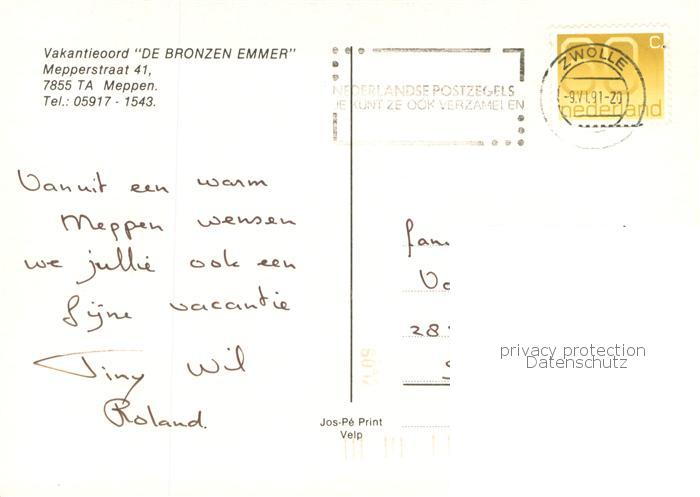 Vakantieoord "DE BRONZEN EMMER"
Mepperstraat 41,
7855 TA Meppen.
Tel.: 05917 - 1543.
NEDERLANDSE POSTZEGELS
JE KUNT ZE OOK VERZAMELEN
ZWOLLE
-9.VI.91-20
60 c.
nederland
Vanuit een warm
Meppen wensen
we jullie ook een
fijne vacantie
Tiny Wil
Roland.
fam
28
privacy protection
Datenschutz
Jos-Pé Print
Velp